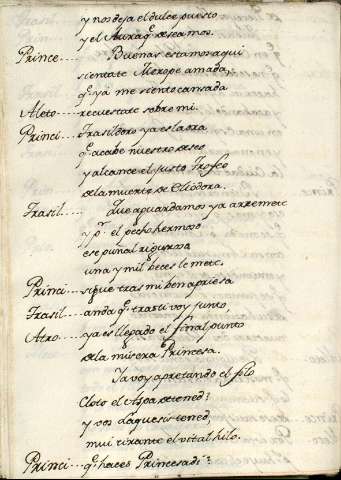 y nos deja el dulce puesto
y el Aura q̃ deseamos.
Prince.... Buenas estamos aqui
sientate Merope amada,
q̃ ya me siento cansada
Aleto.... recuestate sobre mi.
Princi.... Frasildoro ya es la ora
q̃ acabe nuestro deseo
y alcance el justo Trofeo
de la muerte de Eliodora.
Frasil.... Que aguardamos ya arremete
y pr. el pecho hermoso
ese puñal rigurosa
una y mil beces le mete.
Princi.... sigue tras mi ben apriesa
Frasil.... anda q̃ tras ti voy junto,
Atro.... ya es llegado el final punto
de la misera Princesa.
Ia voy apretando el filo
Cloto el Aspa detened
y vos Laquesis tened,
mui tirante el vital hilo.
Princi.... q̃ haces Princesa di?